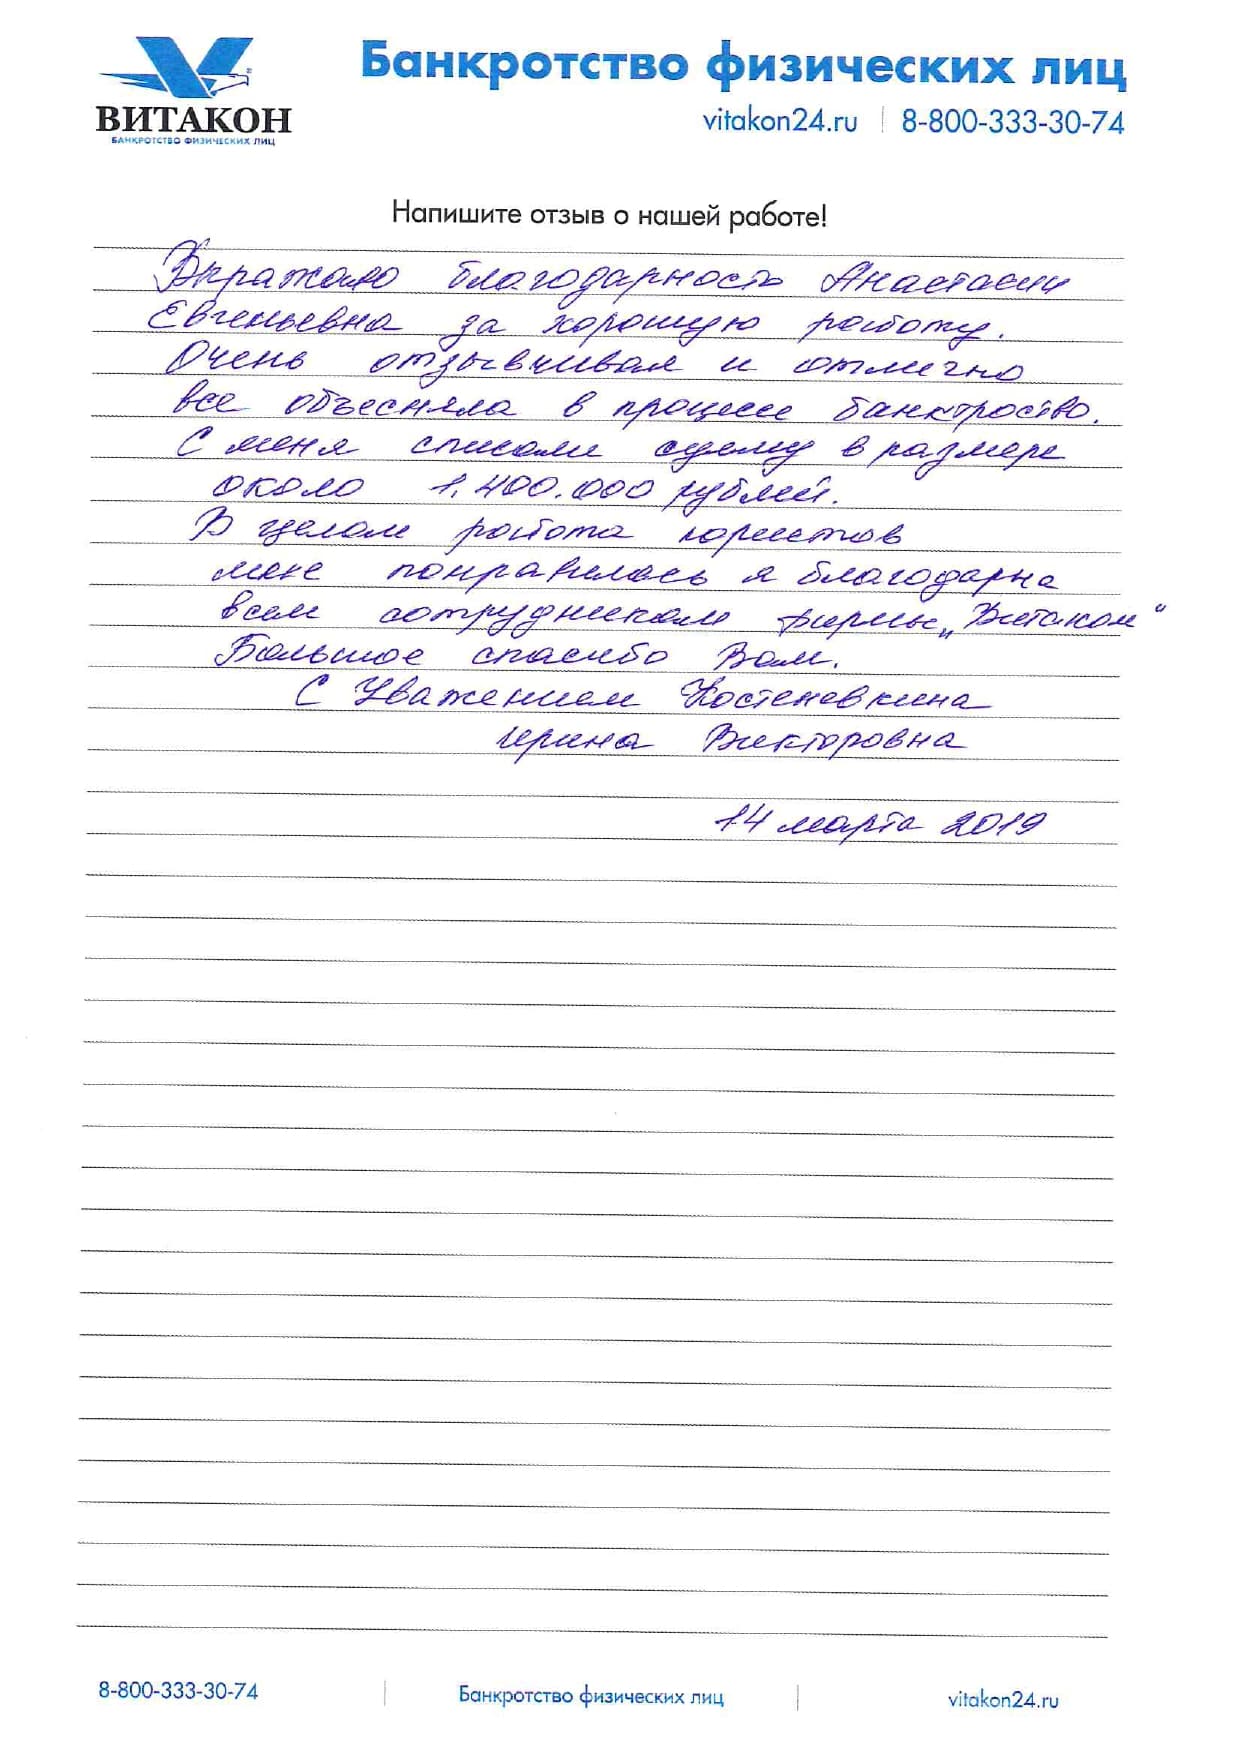 Банкротство физических лиц
ВИТАКОН
БАНКРОТСТВО ФИЗИЧЕСКИХ ЛИЦ
vitakon24.ru | 8-800-333-30-74
Напишите отзыв о нашей работе!
Выражаю благодарность Анастасии
Евгеньевна за хорошую работу.
Очень отзывчивая и отлично
все объесняла в процессе банктроство.
С меня списали сумму в размере
около 1.400.000 рублей.
В целом работа юристов
мне понравилась я благодарна
всем сотрудникам фирмы „Витакон“
Большое спасибо Вам.
С Уважением Костеневкина
Ирина Викторовна
14 марта 2019
8-800-333-30-74 | Банкротство физических лиц | vitakon24.ru